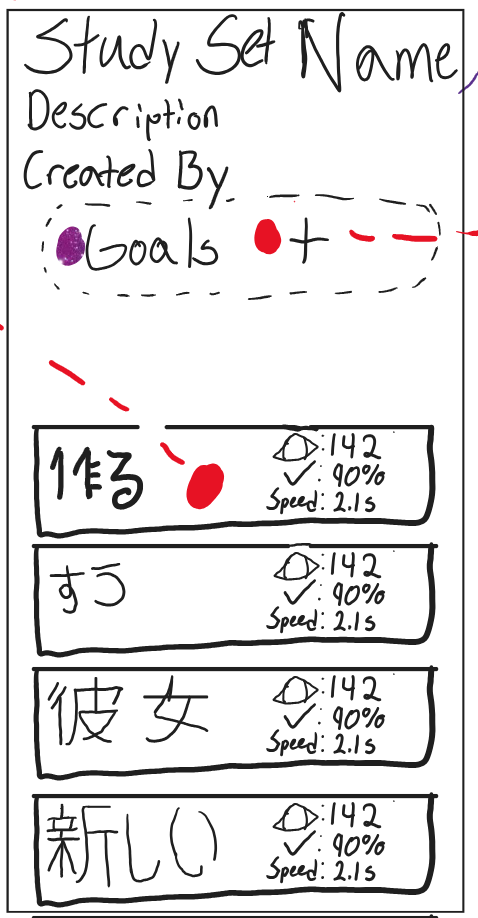 Study Set Name
Description
Created By
Goals +
作る
: 142
: 90%
Speed: 2.1s
すう
: 142
: 90%
Speed: 2.1s
彼女
: 142
: 90%
Speed: 2.1s
新しい
: 142
: 90%
Speed: 2.1s